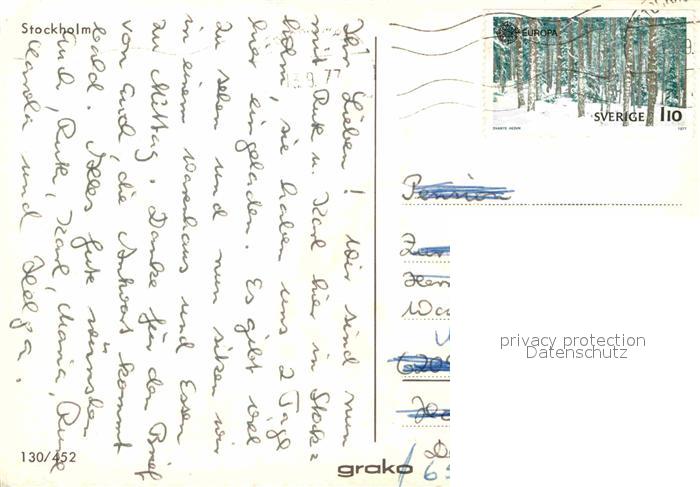 Stockholm
Ihr Lieben! Wir sind nun
mit Rut u. Karl hier in Stock=
holm, sie haben uns 2 Tage
hier eingeladen. Es gibt viel
zu sehen und nun sitzen wir
in einem Warenhaus und Essen
zu Mittag. Danke für den Brief
von Euch, die Antwort kommt
bald. Alles gute wünschen
Euch, Rut, Karl, Maria, Rune
und Helga.
130/452
grako
77
EUROPA
SVERIGE 110
1977
Pension
privacy protection
Datenschutz